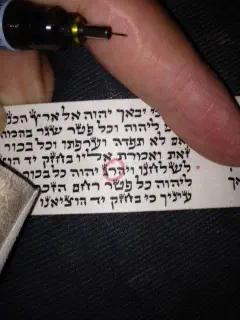 כי יבאך יהוה אל ארץ הכנ
ליהוה וכל פטר שגר בהמה
אם לא תפדה וערפתו וכל בכור
זאת ואמרת אליו בחזק יד הו
לשלחנו ויהרג יהוה כל בכור
ליהוה כל פטר רחם הזכ
עיניך כי בחזק יד הוציאנו